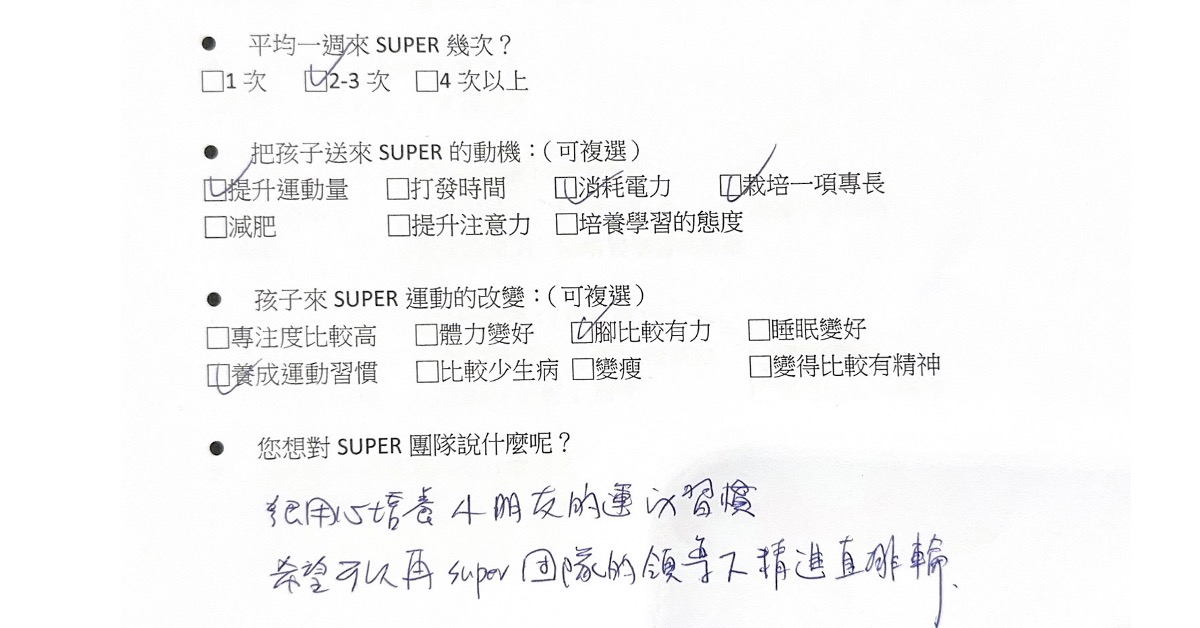 ● 平均一週來 SUPER 幾次？
☐1 次 ☑2-3 次 ☐4 次以上
● 把孩子送來 SUPER 的動機：（可複選）
☑提升運動量 ☐打發時間 ☑消耗電力 ☑栽培一項專長
☐減肥 ☐提升注意力 ☐培養學習的態度
● 孩子來 SUPER 運動的改變：（可複選）
☐專注度比較高 ☐體力變好 ☑腳比較有力 ☐睡眠變好
☑養成運動習慣 ☐比較少生病 ☐變瘦 ☐變得比較有精神
● 您想對 SUPER 團隊說什麼呢？
很用心培養小朋友的運动習慣
希望可以再 super 团隊的領導下精進直排輪、